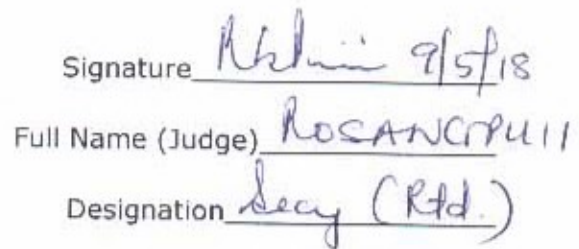 Signature 9/5/18
Full Name (Judge) ROSANGPUII
Designation Secy (Rtd.)